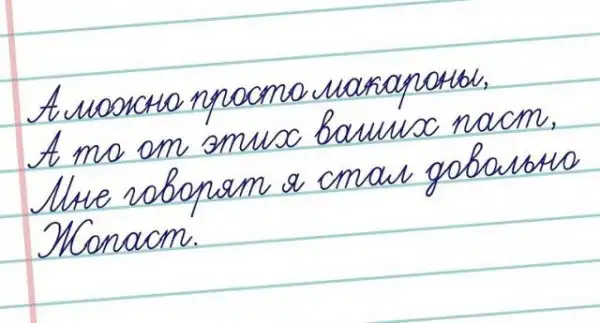 А можно просто макароны,
А то от этих ваших паст,
Мне говорят я стал довольно
Жопаст.